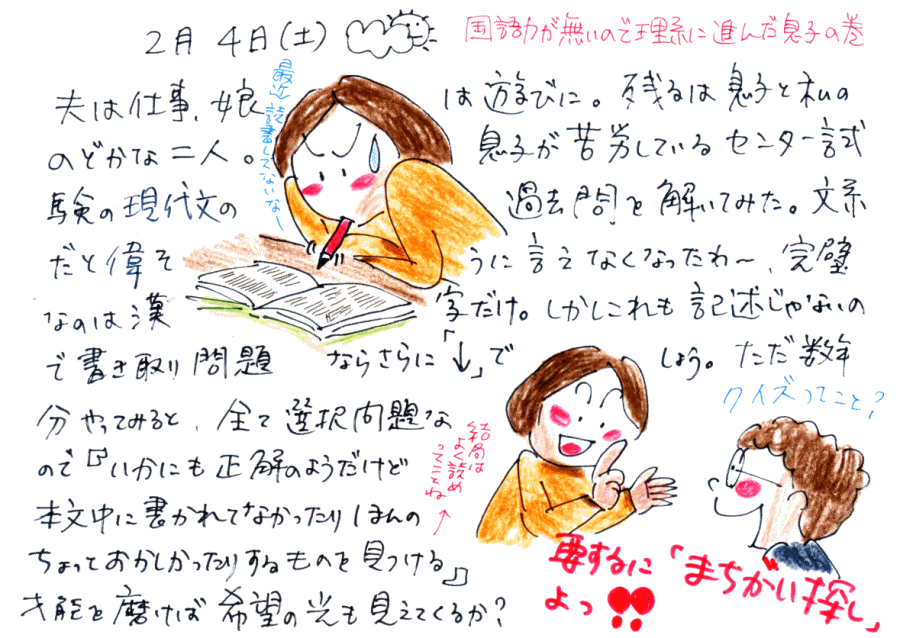 2月4日(土)
国語力が無いので理系に進んだ息子の巻
最近読書してないな～
夫は仕事、娘は遊びに。残るは息子と私の
のどかな二人。息子が苦労しているセンター試
験の現代文の過去問を解いてみた。文系
だと偉そうに言えなくなったわ～、完璧
なのは漢字だけ。しかしこれも記述じゃないの
で書き取り問題ならさらに「↓」でしょう。ただ数年
分やってみると、全て選択問題な
ので『いかにも正解のようだけど
本文中に書かれてなかったりほんの
ちょっておかしかったりするものを見つける』
才能を磨けば希望の光も見えてくるか?
結局は
よく読め
ってことね
↑
クイズってこと?
要するに「まちがい探し」
よっ